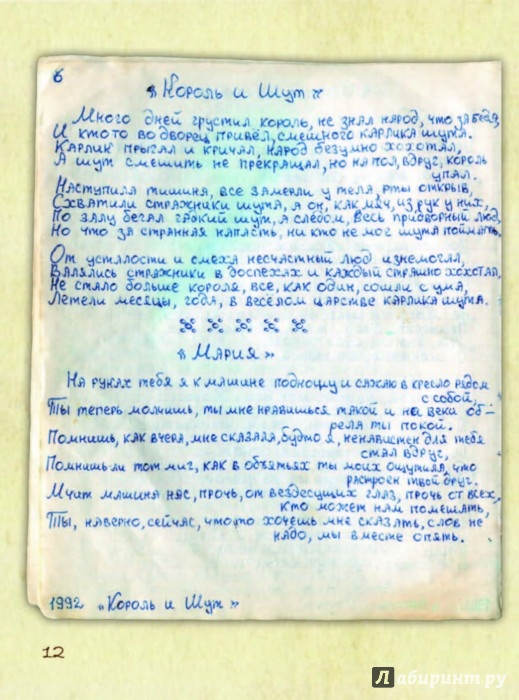 6
"Король и Шут"
Много дней грустил король, не знал народ, что за беда,
И кто то во дворец привёл, смешного карлика шута.
Карлик прыгал и кричал, народ безумно хохотал,
А шут смешить не прекращал, но на пол, вдруг, король
упал.
Наступила тишина, все замерли у тела, рты открыв,
Схватили стражники шута, а он, как мяч, из рук у них,
По залу бегал гадкий шут, а следом, весь придворный люд,
Но что за странная напасть, ни кто не мог шута поймать.
От усталости и смеха несчастный люд изнемогал,
Валялись стражники в доспехах и каждый страшно хохотал,
Не стало больше короля, все, как один, сошли с ума,
Летели месяцы, года, в весёлом царстве карлика шута.
"Мария"
На руках тебя я к машине подношу и сажаю в кресло рядом
с собой,
Ты теперь молчишь, ты мне нравишься такой и на веки об-
рела ты покой.
Помнишь, как вчера, мне сказала, будто я, ненавистен для тебя
стал вдруг,
Помнишь-ли тот миг, как в объятьях ты моих ощутила, что
расстроен твой друг.
Мчит машина нас, прочь, от вездесущих глаз, прочь от всех,
кто может нам помешать,
Ты, наверно, сейчас, что то хочешь мне сказать, слов не
надо, мы вместе опять.
1992 "Король и Шут"
12
Лабиринт.ру